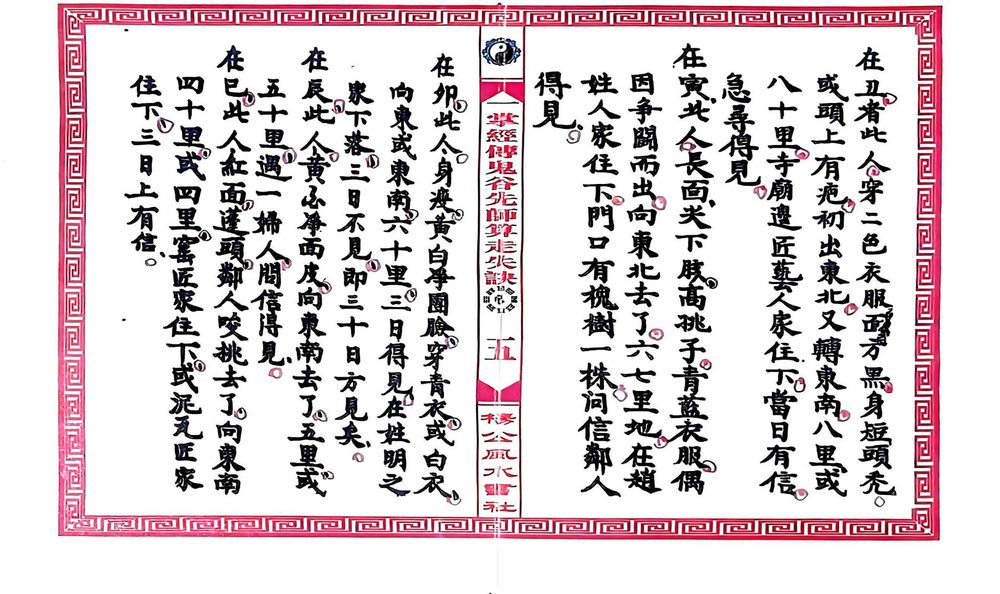 在丑者此人穿二色衣服面方黑身短頭禿
或頭上有疤初出東北又轉東南八里或
八十里寺廟邊匠藝人家住下當日有信
急尋得見
在寅此人長面尖下肢高挑子青藍衣服偶
因爭鬪而出向東北去了六七里地在趙
姓人家住下門口有槐樹一株问信鄰人
得見
一掌經傳鬼谷先師算走失訣
五
楊公風水書社
在卯此人身瘦黃白凈團臉穿青衣或白衣
向東或東南六十里三日得見在姓明之
家下落三日不見即三十日方見矣
在辰此人黃白凈面皮向東南去了五里或
五十里遇一婦人問信得見
在巳此人紅面蓬頭鄰人咬挑去了向東南
四十里或四里窰匠家住下或泥瓦匠家
住下三日上有信